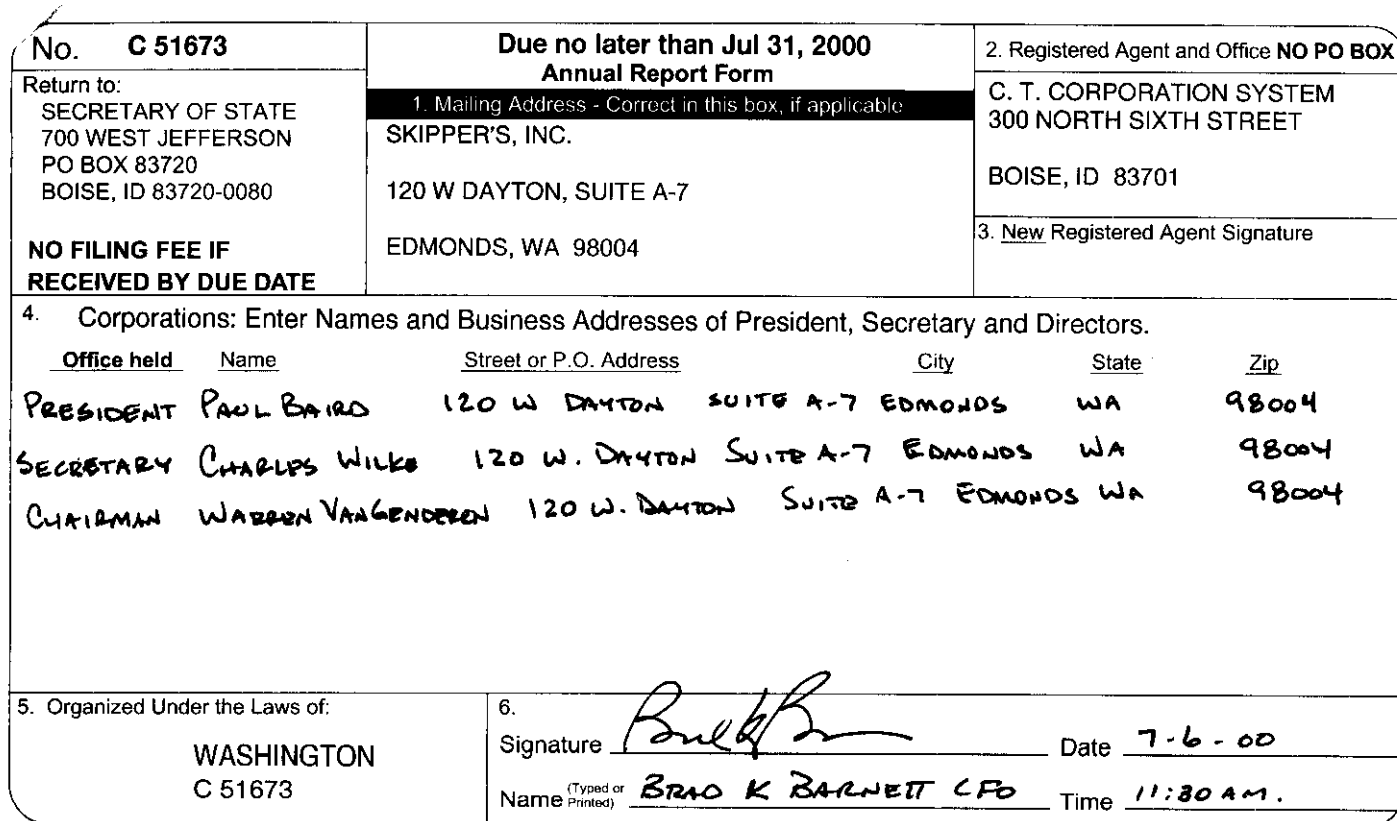 No. C 51673
Return to:
SECRETARY OF STATE
700 WEST JEFFERSON
PO BOX 83720
BOISE, ID 83720-0080
NO FILING FEE IF
RECEIVED BY DUE DATE
Due no later than Jul 31, 2000
Annual Report Form
1. Mailing Address - Correct in this box, if applicable
SKIPPER'S, INC.
120 W DAYTON, SUITE A-7
EDMONDS, WA 98004
2. Registered Agent and Office NO PO BOX
C. T. CORPORATION SYSTEM
300 NORTH SIXTH STREET
BOISE, ID 83701
3. New Registered Agent Signature
4. Corporations: Enter Names and Business Addresses of President, Secretary and Directors.
Office held Name Street or P.O. Address City State Zip
PRESIDENT PAUL BAIRD 120 W DAYTON SUITE A-7 EDMONDS WA 98004
SECRETARY CHARLES WILKE 120 W. DAYTON SUITE A-7 EDMONDS WA 98004
CHAIRMAN WARREN VANGENDEREN 120 W. DAYTON SUITE A-7 EDMONDS WA 98004
5. Organized Under the Laws of:
WASHINGTON
C 51673
6.
Signature Date 7-6-00
Name (Typed or Printed) BRAD K BARNETT CFO Time 11:30 AM.